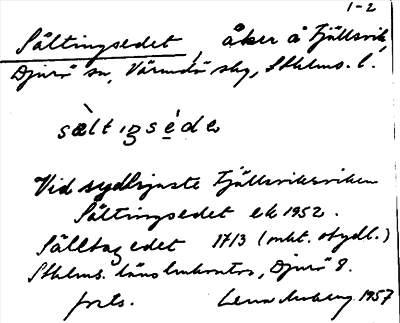 1-2
Sältingsedet, åker å Fjällsvik,
Djurö sn, Värmdö skg, Sthlms. l.
sæ̀ltıŋséde
Vid sydligaste Fjällsviksviken
Sältingsedet ek 1952.
Sälltag edet 1713 (mkt. otydl.)
Sthlms. läns lmkontor, Djurö 8.
forts. 1957